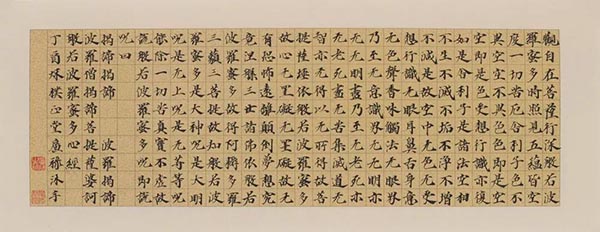 觀自在菩薩行深般若波
羅蜜多時照見五蘊皆空
度一切苦厄舍利子色不
異空空不異色色即是空
空即是色受想行識亦復
如是舍利子是諸法空相
不生不滅不垢不淨不增
不減是故空中无色无受
想行識无眼耳鼻舌身意
无色聲香味觸法无眼界
乃至无意識界无无明亦
无无明盡乃至无老死亦
无老死盡无苦集滅道无
智亦无得以无所得故菩
提薩埵依般若波羅蜜多
故心无罣礙无罣礙故无
有恐怖遠離顛倒夢想究
竟涅槃三世諸佛依般若
波羅蜜多故得阿耨多羅
三藐三菩提故知般若波
羅蜜多是大神呪是大明
呪是无上呪是无等等呪
能除一切苦真實不虛故
說般若波羅蜜多呪即說
呪曰
揭諦揭諦 波羅揭諦
波羅僧揭諦菩提薩婆訶
般若波羅蜜多心經
丁酉秋 正堂 沐手